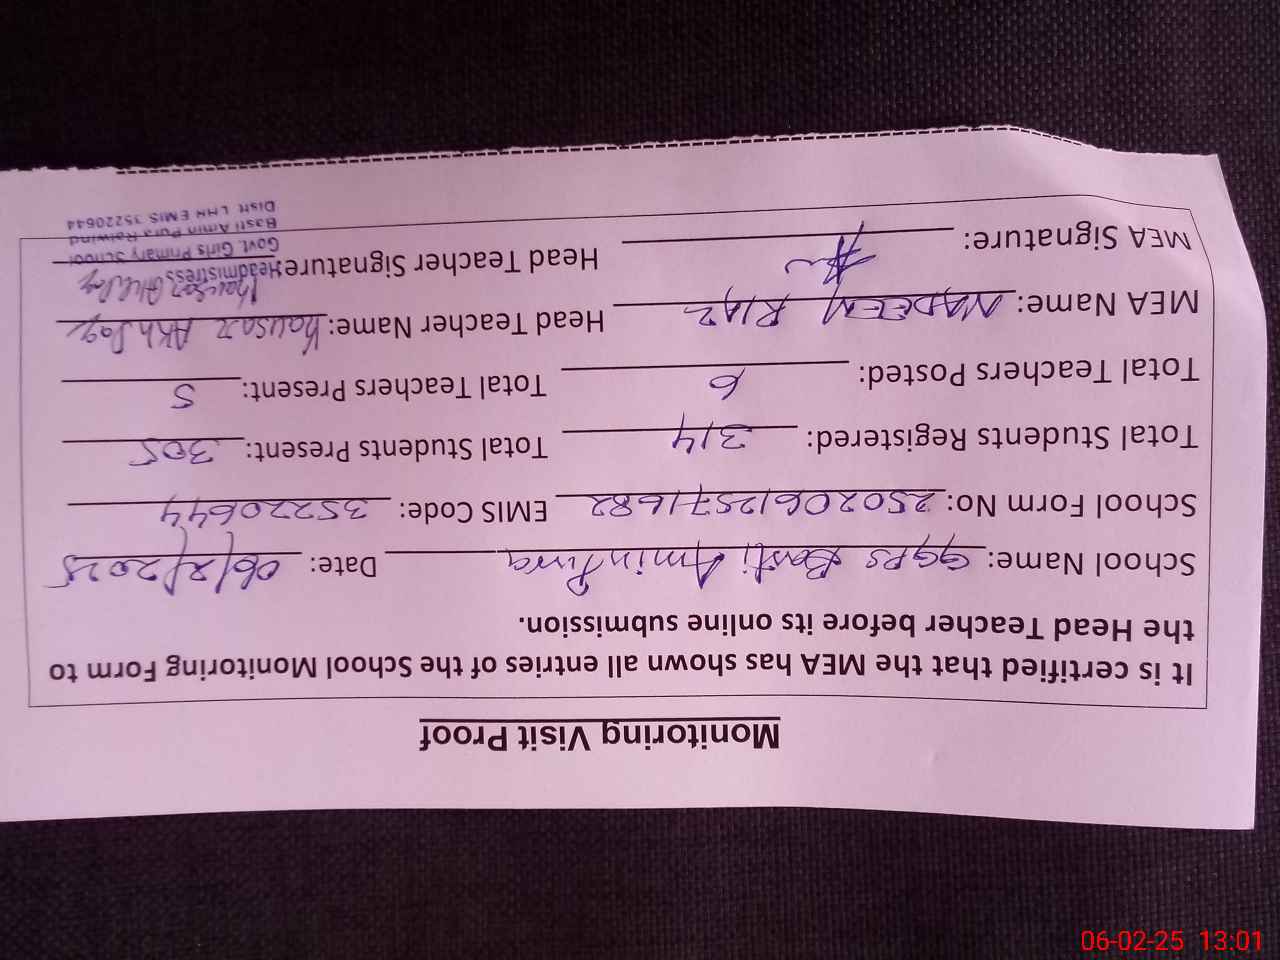 Monitoring Visit Proof
It is certified that the MEA has shown all entries of the School Monitoring Form to
the Head Teacher before its online submission.
School Name: GGPS Basti Amin Pura Date: 06/2/2025
School Form No: 250206125716 82 EMIS Code: 35220644
Total Students Registered: 314 Total Students Present: 305
Total Teachers Posted: 6 Total Teachers Present: 5
MEA Name: NADEEM RIAZ Head Teacher Name: Kausar
MEA Signature: Head Teacher Signature:
Headmistress
Govt. Girls Primary School
Basti Amin Pura Raiwind
Distt. LHR EMIS 35220644
06-02-25 13:01